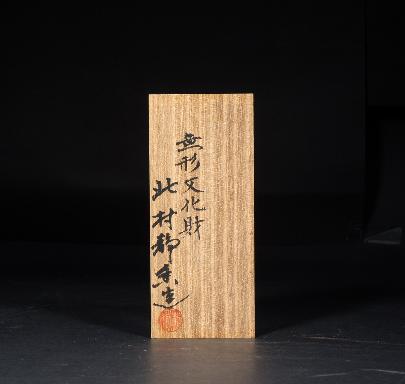 無形文化財
北村静香造